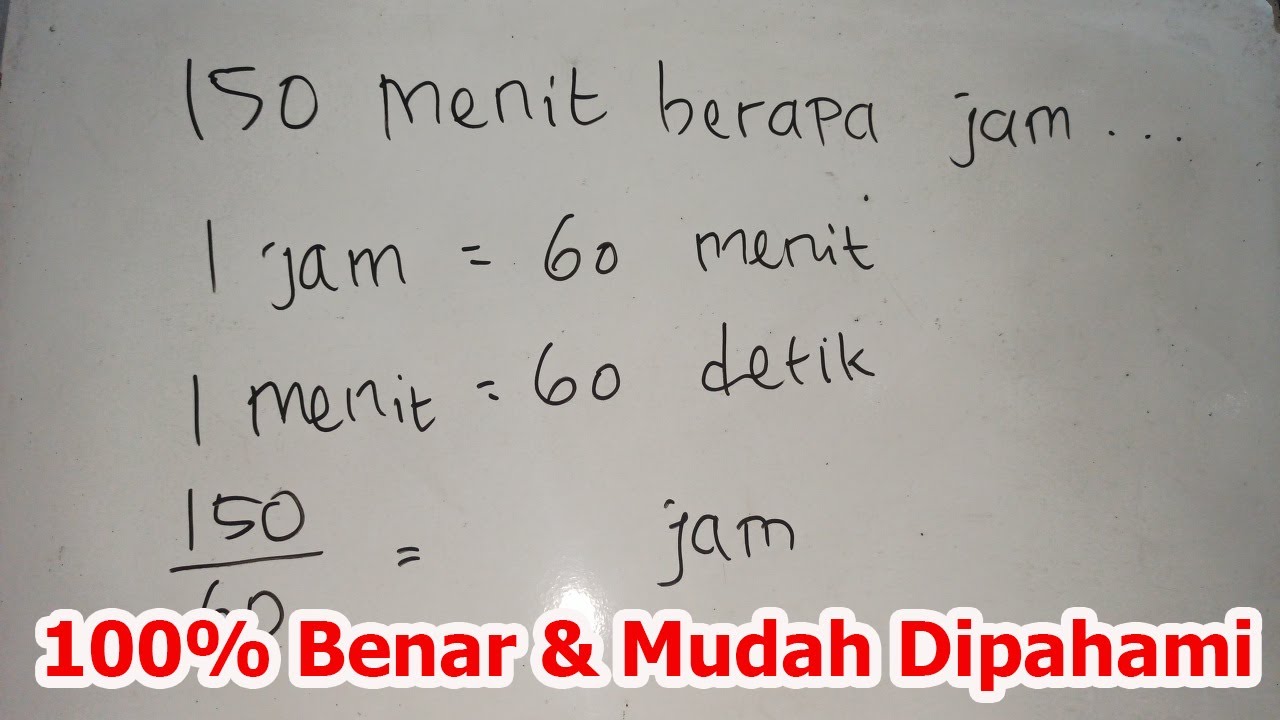 150 menit berapa jam ...
1 jam = 60 menit
1 menit = 60 detik
150
60
= jam
100% Benar & Mudah Dipahami